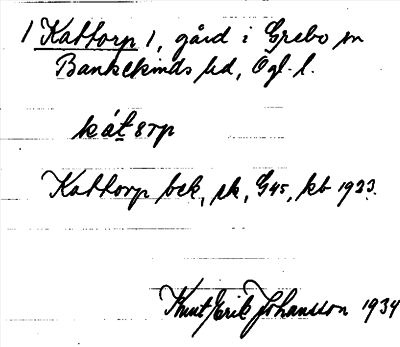 1 Kattorp 1, gård i Grebo sn
Bankekinds hd, Ögl. l.
kát 8rp
Kattorp bek, sk, G45, kb 1923.
Knut Erik Johansson 1934